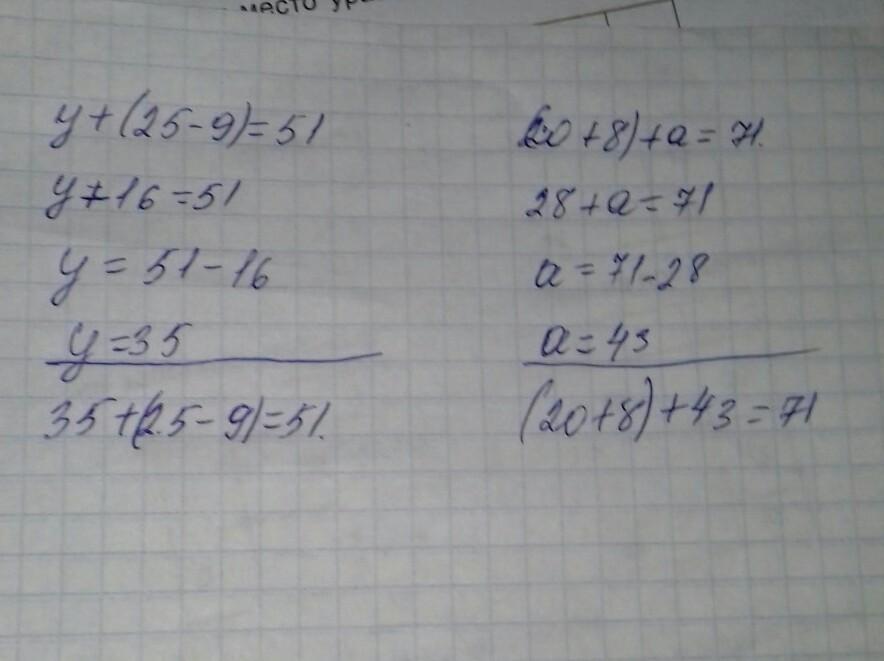 место
y+(25-9)=51
y+16=51
y=51-16
y=35
35+(25-9)=51.
(20+8)+a=71.
28+a=71
a=71-28
a=43
(20+8)+43=71